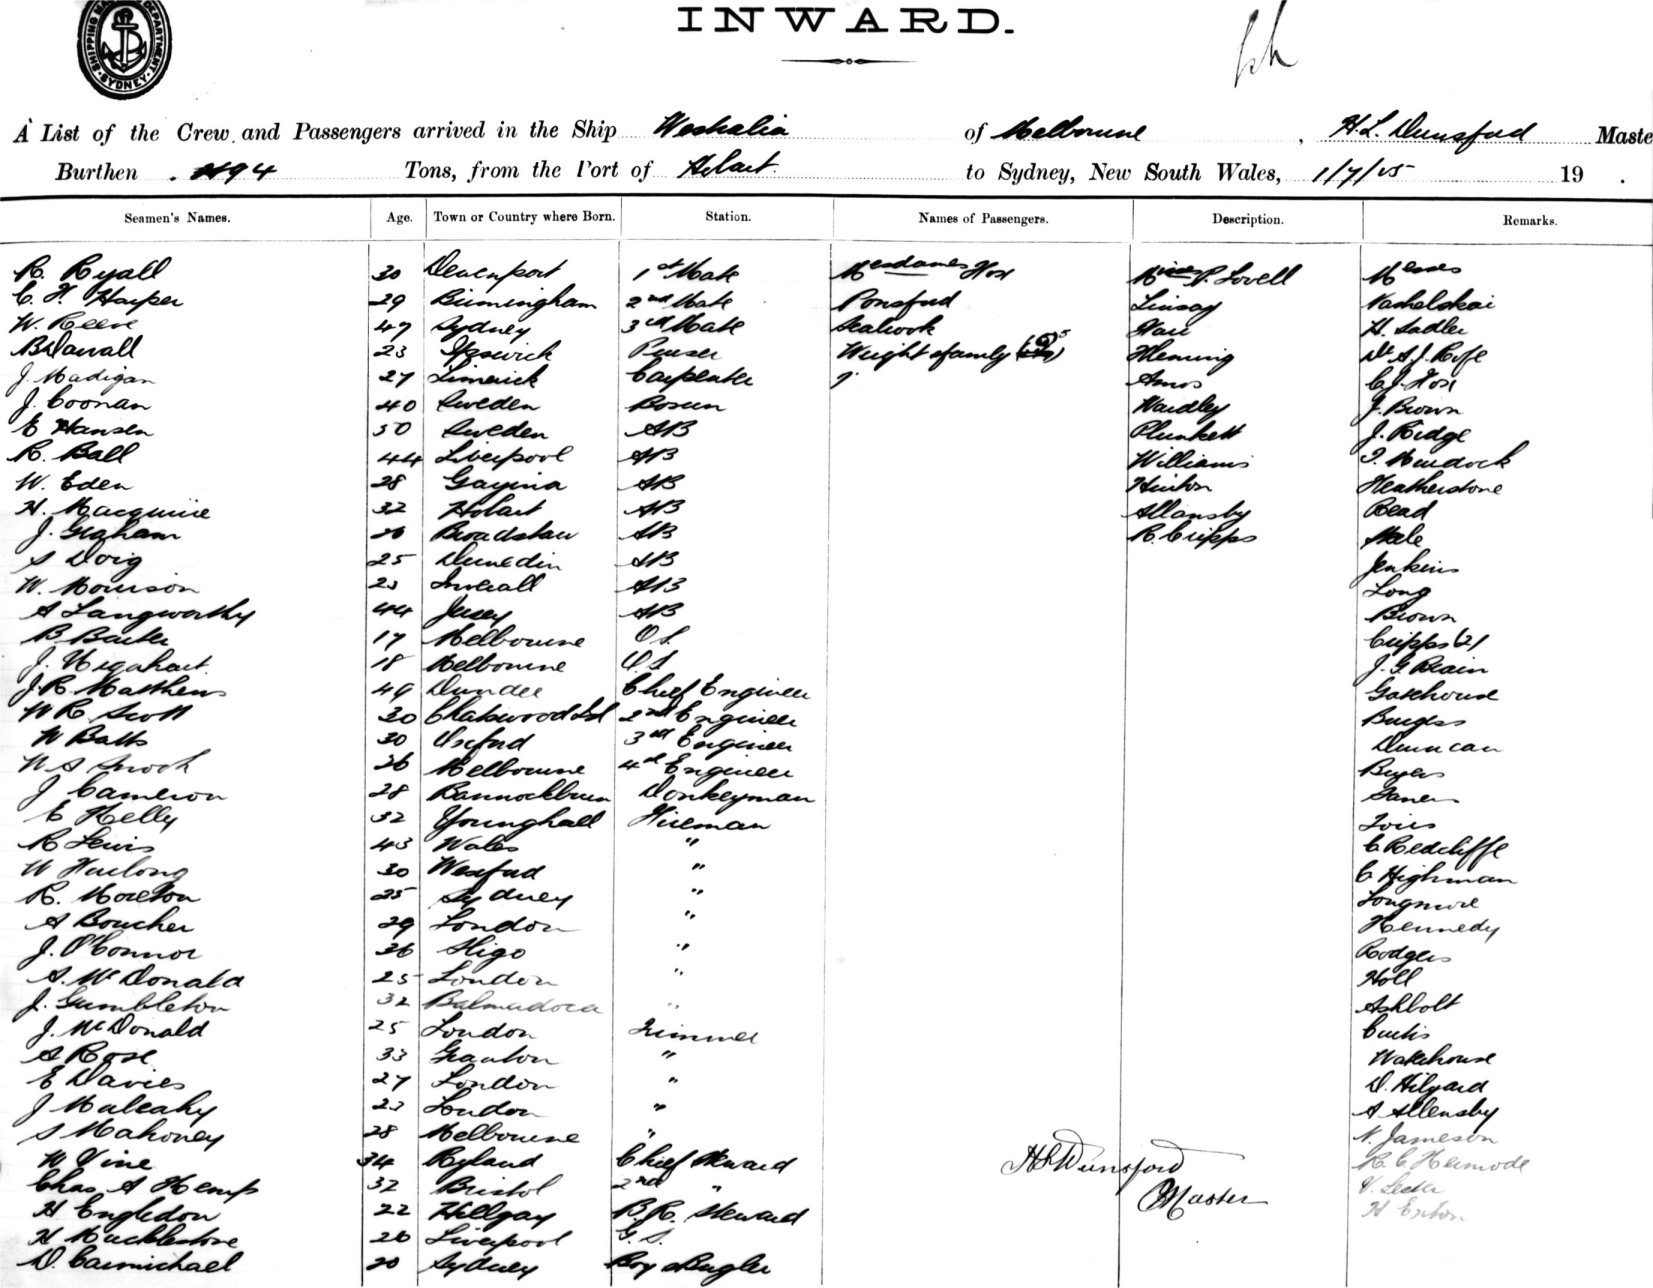 SHIPPING MASTER'S DEPARTMENT. SYDNEY
INWARD.
A List of the Crew and Passengers arrived in the Ship Westralia of Melbourne, H.L. Dunsford Maste
Burthen Tons, from the Port of Hobart to Sydney, New South Wales, 1/7/15 19 .
Seamen's Names. Age. Town or Country where Born. Station. Names of Passengers. Description. Remarks.
R. Ryall 30 Devenport 1st Mate Mesdames Fox Misses P. Lovell Messrs
C. F. Harper 29 Birmingham 2nd Mate Ponsford Linsay
W. Reeve 47 Sydney 3rd Mate Seabrook H. Sadler
B Darvall 23 Ipswich Purser Wright & family Fleming Dr A.J. Rofe
J. Madigan 27 Limerick Carpenter Amos C.J. Fox
J. Coonan 40 Sweden Bosun Hardley J. Brown
E Hansen 50 Sweden AB Plunkett J. Ridge
R. Ball 44 Liverpool AB Williams Murdock
W. Eden 28 AB Hinton Heatherstone
H. Macguire 32 Hobart AB Allansby Read
J. Graham 26 Broadstaw AB R. Cripps Hale
S Doig 25 Dunedin AB Jenkins
W. Morrison 23 Inverall AB Long
A Langworthy 44 Jersey AB Brown
B. Barter 17 Melbourne O.S. Cripps (2)
J. Urquhart 18 Melbourne O.S. J. G. Brain
J. R. Matthews 49 Dundee Chief Engineer Gatehouse
W R. Scott 30 Chatswood 2nd Engineer Burgess
W Batts 30 Oxford 3rd Engineer Duncan
W S 26 Melbourne 4th Engineer Byers
J Cameron 28 Bannockburn Donkeyman
E Kelly 32 Younghall Fireman
R Lewis 43 Wales " C Redcliffe
W Furlong 30 Wexford " C Highman
R. Morton 25 Sydney " Longmore
A Boucher 29 London " Kennedy
J. O'Connor 26 Sligo " Rodgers
A. McDonald 25 London " Holl
J. Gumbleton 32 " Ashbolt
J. McDonald 25 London Trimmer Curtis
A Rose 33 Granton " Wakehouse
E Davies 27 London " D. Hilyard
J Mulcahy 23 London " A Allensby
S Mahoney 28 Melbourne " N. Jameson
W Vine 34 Ryland Chief Steward R. C. Hermode
Chas A Kemp 32 Bristol 2nd " V. Lester
H Engledon 22 Hillgay B.R. Steward
H Mucklestone 26 Liverpool G.S.
D. Carmichael 20 Sydney Boy Bugler
H L Dunsford
Master